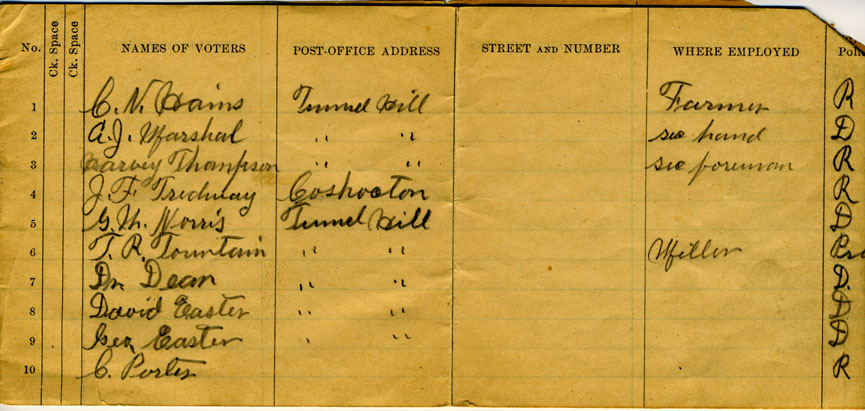 No. Ck. Space Ck. Space NAMES OF VOTERS POST-OFFICE ADDRESS STREET AND NUMBER WHERE EMPLOYED
1 C. N. Hains Tunnel Hill Farmer R
2 A. J. Marshal " " sec hand D
3 Harvey Thompson " " sec foreman R
4 J. F. Tredway Coshocton R
5 G. M. Norris Tunnel Hill D
6 T. R. Fountain " " Miller
7 Dr. Dean " " D.
8 David Easter " " D
9 Geo. Easter " " D
10 C. Porter R